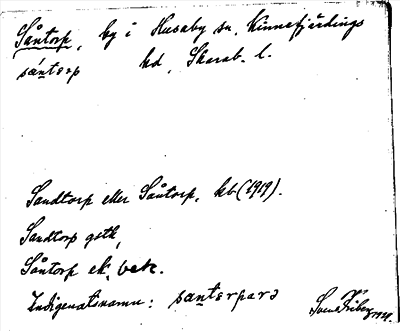 Såntorp, by i Husaby sn, Kinnefjärdings
såntɛrp hd, Skarab. l.
Sandtorp eller Såntorp, kb (1919).
Sandtorp gstk,
Såntorp ek. bek.
Indigenatsnamn: santɛrparə
Sven Friberg